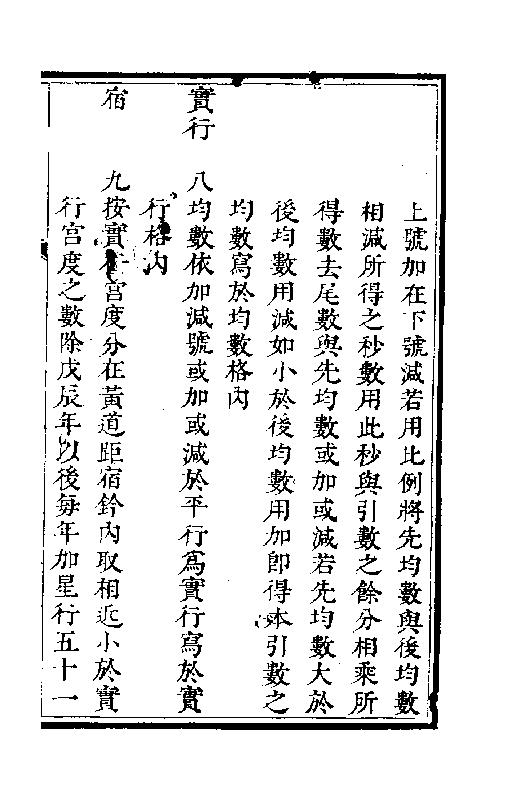 上號加在下號減若用比例將先均數與後均數
相減所得之秒數用此秒與引數之餘分相乘所
得數去尾數與先均數或加或減若先均數大於
後均數用減如小於後均數用加即得本引數之
均數寫於均數格內
實行　八均數依加減號或加或減於平行爲實行寫於實
行格內
宿　九按實行宮度分在黃道距宿鈐內取相近小於實
行宮度之數除戊辰年以後每年加星行五十一